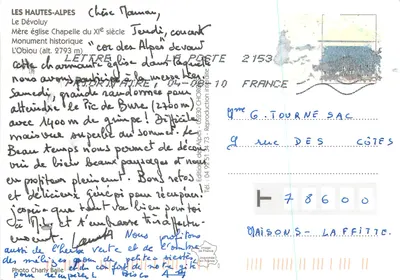 LES HAUTES-ALPES
Le Dévoluy
Mère église Chapelle du XIe siècle
Monument historique
L'Obiou (alt. 2793 m)
Chère Maman,
Jeudi, concert
"cor des Alpes devant
cette charmante église dans laquelle
nous avons participé à la messe hier
Samedi, grande randonnée pour
atteindre le Pic de Bure (2700m)
avec 1400m de grimpe! Difficile
mais vue superbe au sommet. Le
Beau temps nous permet de découvrir
de bien beaux paysages et nous en
profitons pleinement. Bons restos
et délicieux génépi pour récupérer!
J'espère que tout va bien pour toi
à et t'embrasse très affectueusement.
Nous profitons
aussi de l'herbe verte et de l'ombre
des mélèzes pour des petites siestes
et du confort de notre gîte
pour récupérer! bises
Photo Charly Baile
LETTRE
LA POSTE 2153
PRIORITAIRE, 04-08-10 FRANCE
Mme G. TOURNESAC
9 rue DES CÔTES
78600
MAISONS-LAFFITTE.